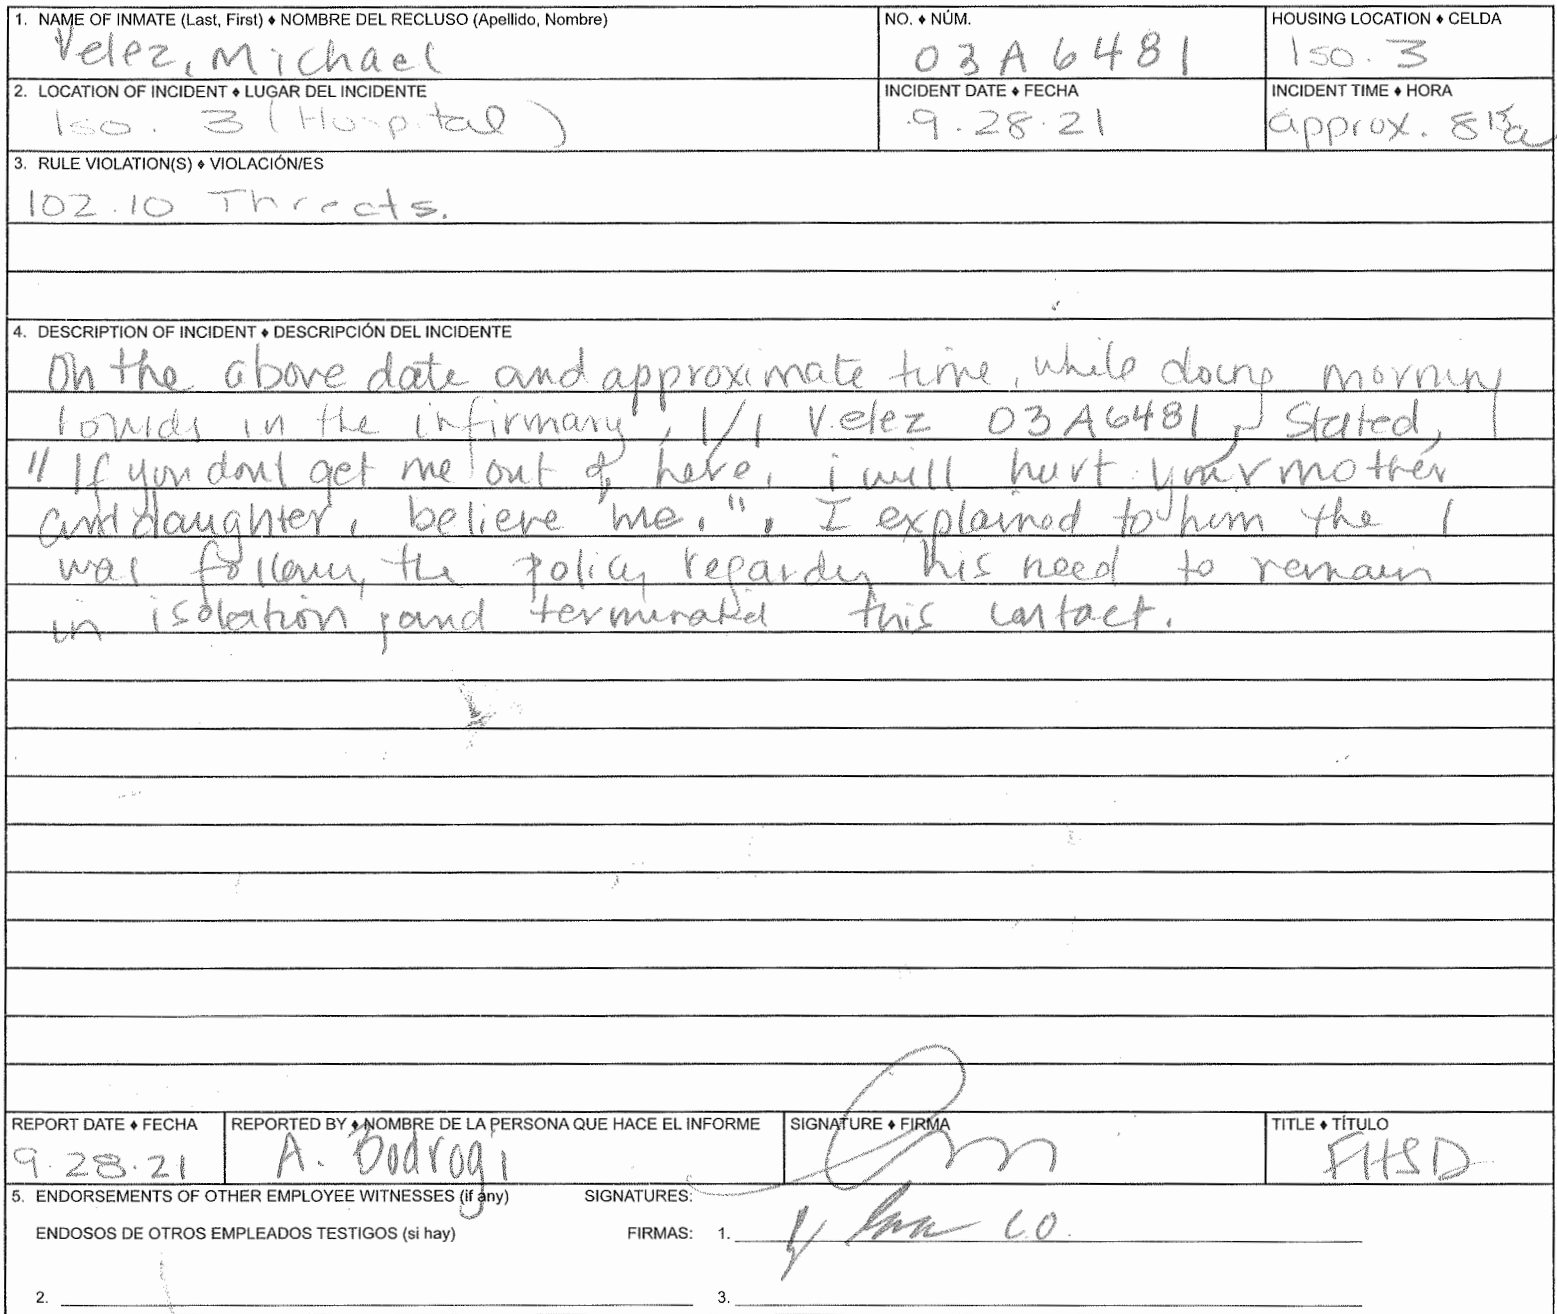 1. NAME OF INMATE (Last, First) ♦ NOMBRE DEL RECLUSO (Apellido, Nombre)
Velez, Michael
NO. ♦ NÚM.
03A6481
HOUSING LOCATION ♦ CELDA
Iso. 3
2. LOCATION OF INCIDENT ♦ LUGAR DEL INCIDENTE
Iso. 3 (Hospital)
INCIDENT DATE ♦ FECHA
9.28.21
INCIDENT TIME ♦ HORA
approx. 8 15a
3. RULE VIOLATION(S) ♦ VIOLACIÓN/ES
102.10 Threats.
4. DESCRIPTION OF INCIDENT ♦ DESCRIPCIÓN DEL INCIDENTE
On the above date and approximate time, while doing morning
rounds in the infirmary, I/I Velez 03A6481, Stated,
"If you dont get me out of here, i will hurt your mother
and daughter, believe me.". I explained to him the I
was following the policy regarding his need to remain
in isolation, and terminated this contact.
REPORT DATE ♦ FECHA
9.28.21
REPORTED BY ♦ NOMBRE DE LA PERSONA QUE HACE EL INFORME
A. Bodrogi
SIGNATURE ♦ FIRMA
TITLE ♦ TÍTULO
FHSD
5. ENDORSEMENTS OF OTHER EMPLOYEE WITNESSES (if any) SIGNATURES:
ENDOSOS DE OTROS EMPLEADOS TESTIGOS (si hay) FIRMAS: 1. C.O.
2. 3.